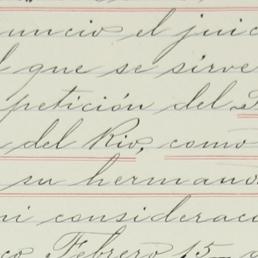 nuncio el juic
que se sirve
petición del
del Rio, como
su hermano
ni consideraci
co Febrero 15